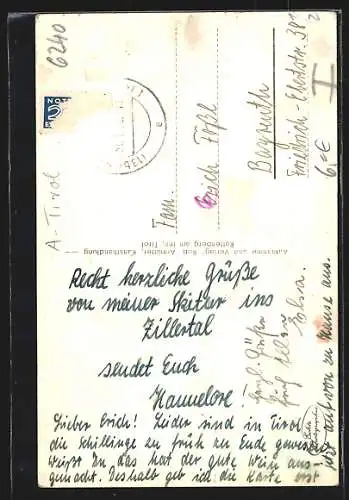 6240
A-Tirol
Fam.
Erich
Bayreuth
Friedrich-Ebertstr. 38
6,-€
Aufnahme und Verlag: Rob. Armütter, Kunsthandlung
Rattenberg am Inn, Tirol
Recht herzliche Grüße
von meiner Skitour ins
Zillertal
sendet Euch
Hannelore!
Lieber Erich! Leider sind in Tirol
die Schillinge zu früh zu Ende gewesen
Weißt Du, das hat der gute Wein aus-
gemacht. Deshalb geb ich die Karte erst
jetzt auf von zu Hause aus.
Herzl. Grüße
Elsa.